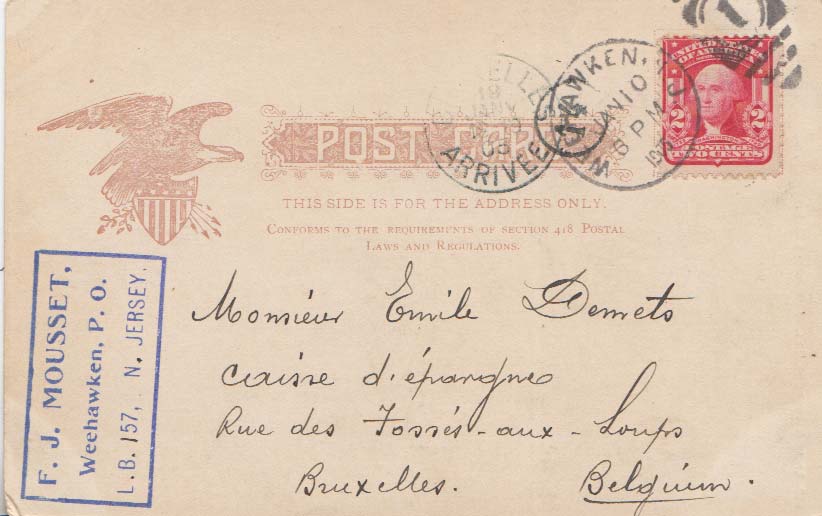 POST CARD
THIS SIDE IS FOR THE ADDRESS ONLY.
CONFORMS TO THE REQUIREMENTS OF SECTION 418 POSTAL
LAWS AND REGULATIONS.
UNITED STATES
OF AMERICA
2 2
POSTAGE
TWO CENTS
1
JAN 10
6 PM
N.J.
ELLES
19
JANV
ARRIVEE
F. J. MOUSSET,
Weehawken, P. O.
L.B. 157, N. JERSEY.
Monsieur Emile Demets
caisse d'épargne
Rue des Fossés-aux-Loups
Bruxelles. Belgium.